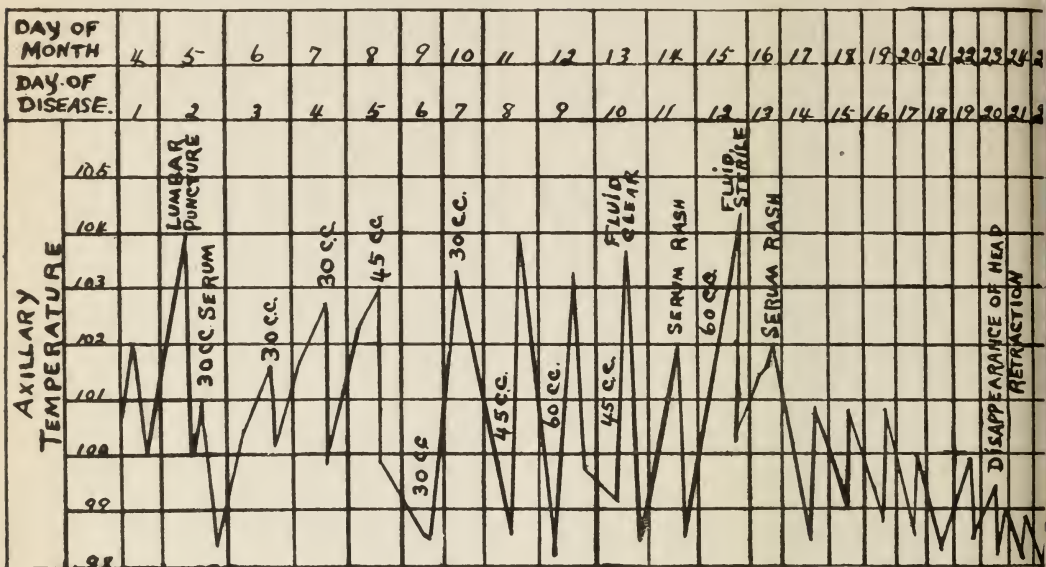 DAY OF
MONTH 4 5 6 7 8 9 10 11 12 13 14 15 16 17 18 19 20 21 22 23 24
DAY OF
DISEASE. 1 2 3 4 5 6 7 8 9 10 11 12 13 14 15 16 17 18 19 20 21
AXILLARY
TEMPERATURE
105
104
103
102
101
100
99
98
LUMBAR
PUNCTURE
30 CC. SERUM
30 CC.
30 CC
45 CC
30 CC
30 CC.
45 CC.
60 CC.
45 CC.
FLUID
CLEAR
SERUM RASH
60 CC.
FLUID,
STERILE
SERUM RASH
DISAPPEARANCE OF HEAD
RETRACTION